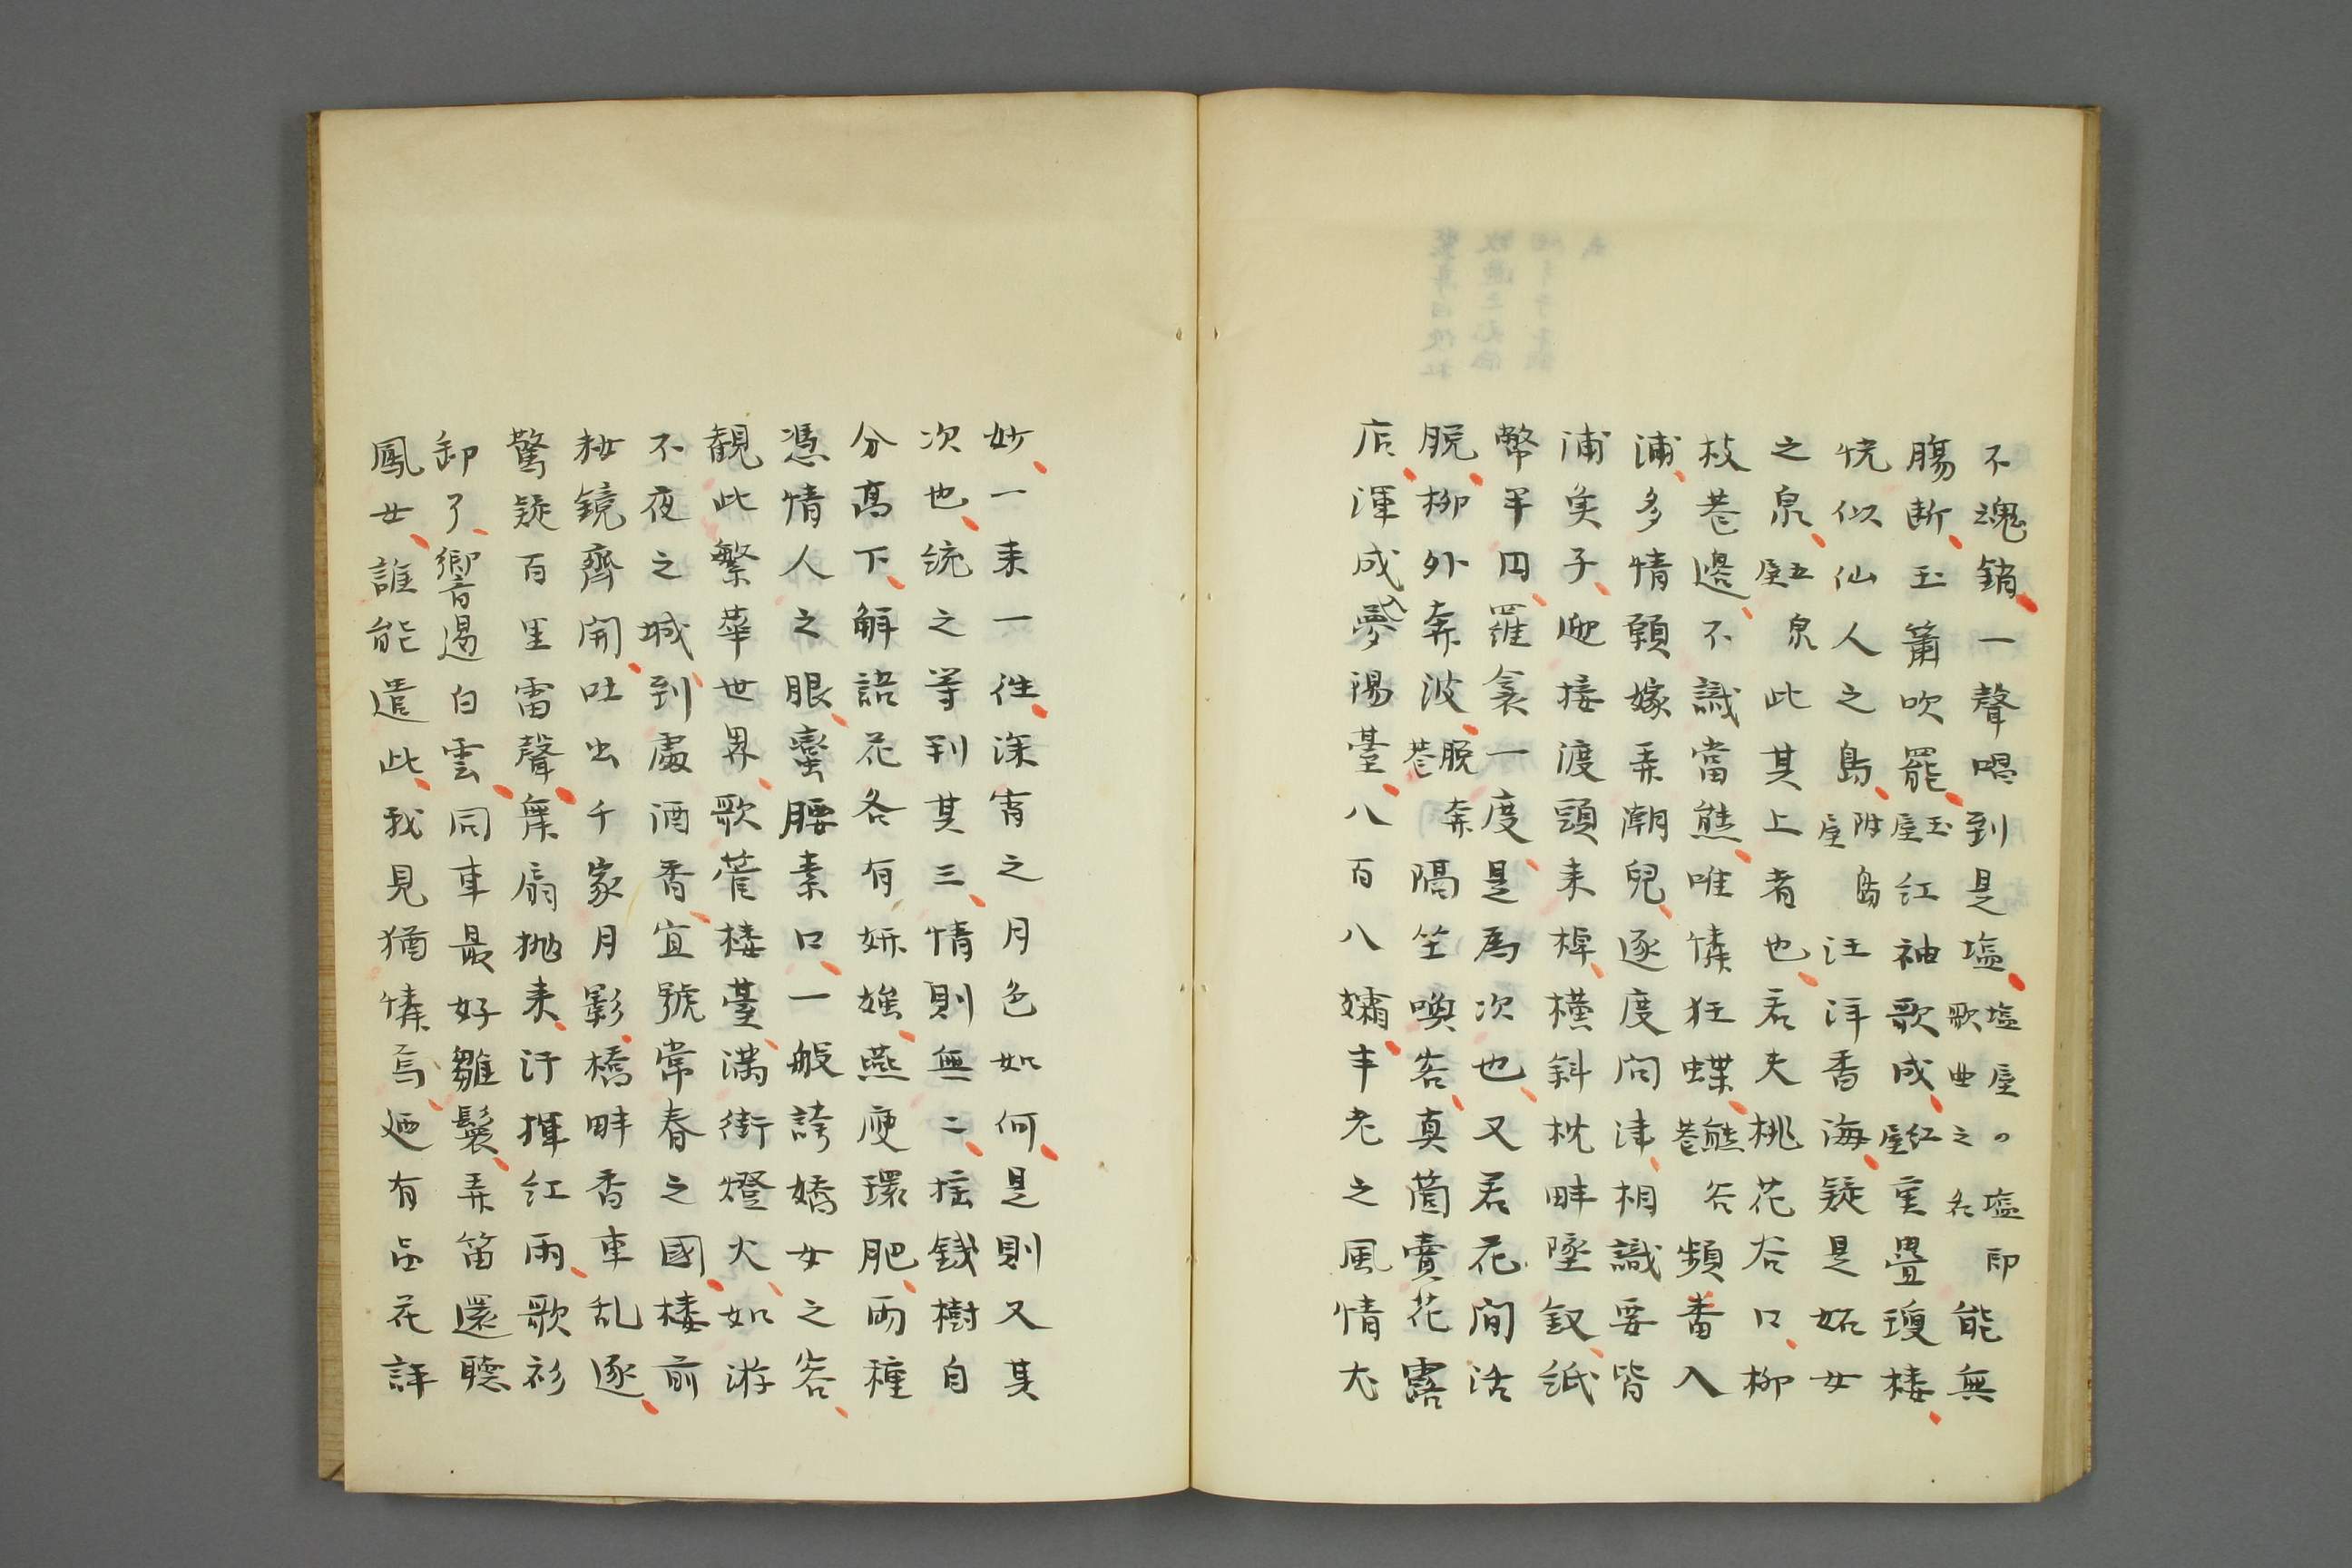 不魂銷一聲唱到是塩塩屋の塩即歌曲之名能無
腸断玉簫吹罷玉屋紅袖歌成紅屋重疊瓊楼
恍似仙人之島附屋島汪洋香海疑是妬女
之泉五泉屋此其上者也若夫桃花谷口柳
枝巷邊不識當熊唯憐狂蝶熊谷巷頻番入
浦多情願嫁弄潮兒逐度問津相識要皆
浦矣子迎接渡頭来棹横斜枕畔墜釵紙
幣半円羅衾一度是為次也又若花間活
脱柳外奔波脱奔巷隔笠喚客真箇賣花露
店渾成入夢陽臺八百八嬌半老之風情尤
妙一来一徃深宵之月色如何是則又其
次也統之等列其三情則無二揺錢樹自
分高下解語花各有妍媸燕瘦環肥両種
憑情人之眼蠻腰素口一般誇嬌女之容
観此繁華世界歌管楼臺満街燈火如游
不夜之城到處酒香宜號常春之國楼前
粧鏡齊開吐出千家月影橋畔香車乱逐
驚疑百里雷聲舞扇抛来汗揮紅雨歌衫
卸了響遏白雲同車最好雛鬟弄笛還聴
鳳女誰能遣此我見猶憐焉廼有品花評